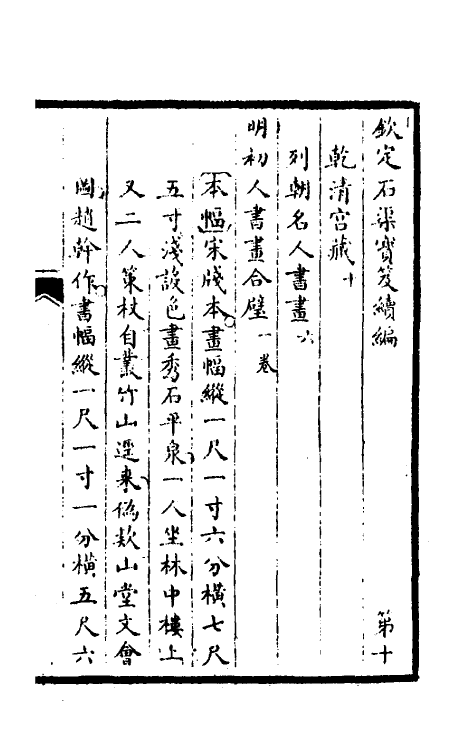 欽定石渠寶笈續編 第十
乾清宮藏十
列朝名人書畫六
明初人書畫合璧一卷
本幅宋牋本畫幅縱一尺一寸六分橫七尺
五寸淺設色畫秀石平泉一人坐林中樓上
又二人策杖自叢竹山邊來偽款山堂文會
圖趙幹作書幅縱一尺一寸一分橫五尺六